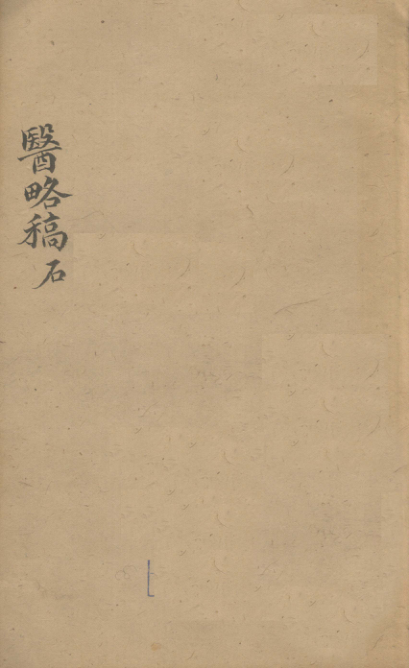 醫略稿 石